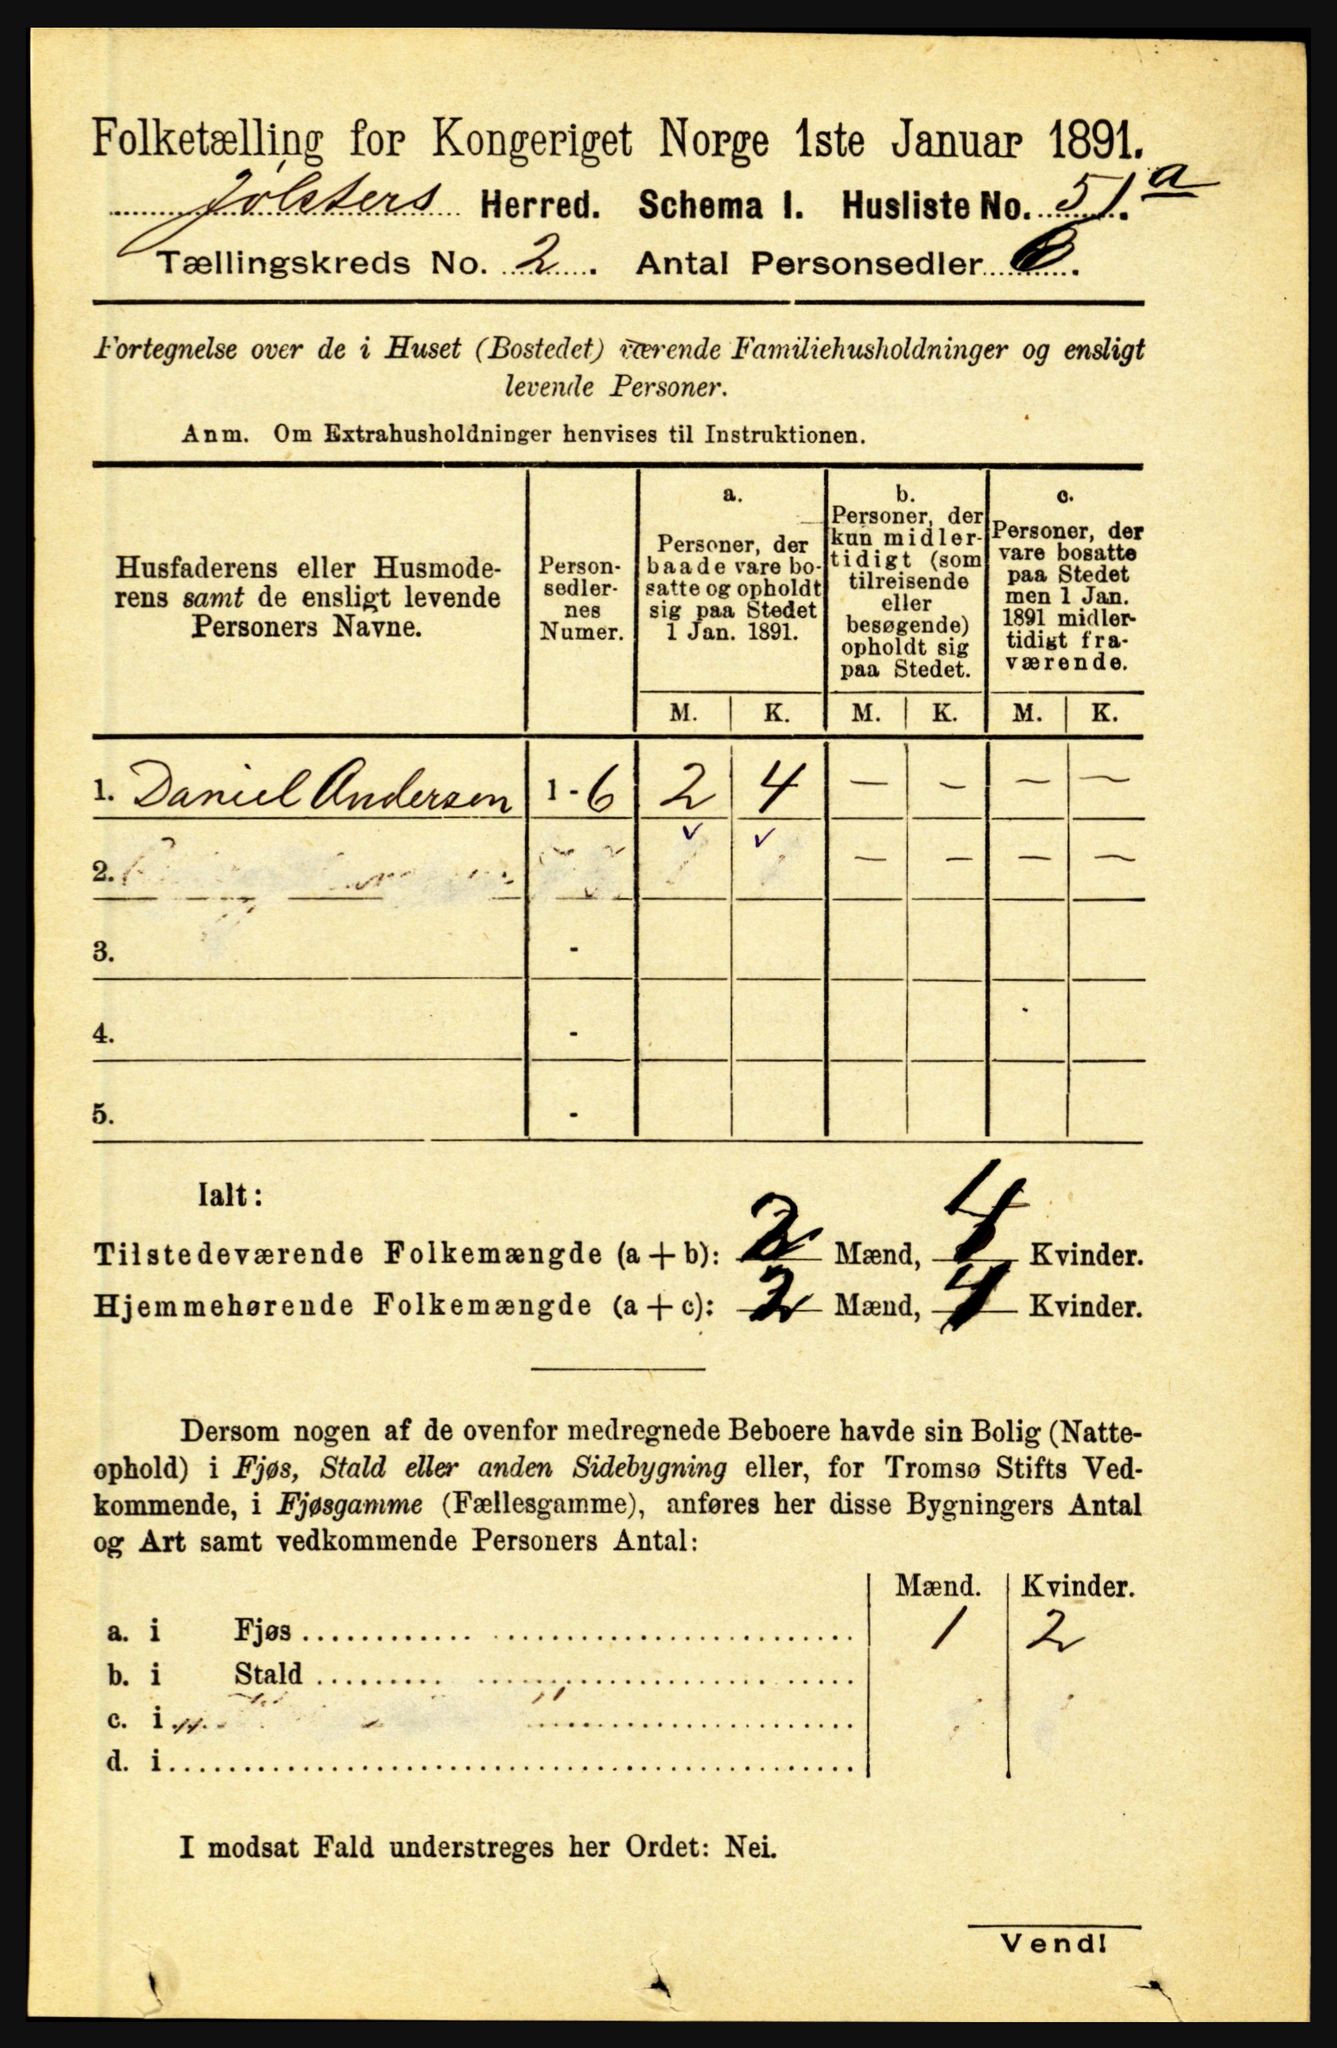 Folketælling for Kongeriget Norge 1ste Januar 1891.
Jølsters Herred. Schema I. Husliste No. 51.a
Tællingskreds No. 2. Antal Personsedler 6.
Fortegnelse over de i Huset (Bostedet) værende Familiehusholdninger og ensligt
levende Personer.
Anm. Om Extrahusholdninger henvises til Instruktionen.
Husfaderens eller Husmode-
rens samt de ensligt levende
Personers Navne.
Person-
sedler-
nes
Numer.
a.
Personer, der
baade vare bo-
satte og opholdt
sig paa Stedet
1 Jan. 1891.
b.
Personer, der
kun midler-
tidigt (som
tilreisende
eller
besøgende)
opholdt sig
paa Stedet.
c.
Personer, der
vare bosatte
paa Stedet
men 1 Jan.
1891 midler-
tidigt fra-
værende.
M. K. M. K. M. K.
1. Daniel Andersen 1 - 6 2 4 — — — —
2. — — — —
3. -
4. -
5. -
Ialt:
Tilstedeværende Folkemængde (a + b): 2 Mænd, 4 Kvinder.
Hjemmehørende Folkemængde (a + c): 2 Mænd, 4 Kvinder.
Dersom nogen af de ovenfor medregnede Beboere havde sin Bolig (Natte-
ophold) i Fjøs, Stald eller anden Sidebygning eller, for Tromsø Stifts Ved-
kommende, i Fjøsgamme (Fællesgamme), anføres her disse Bygningers Antal
og Art samt vedkommende Personers Antal:
Mænd. Kvinder.
a. i Fjøs 1 2
b. i Stald
c. i
d. i
I modsat Fald understreges her Ordet: Nei.
Vend!